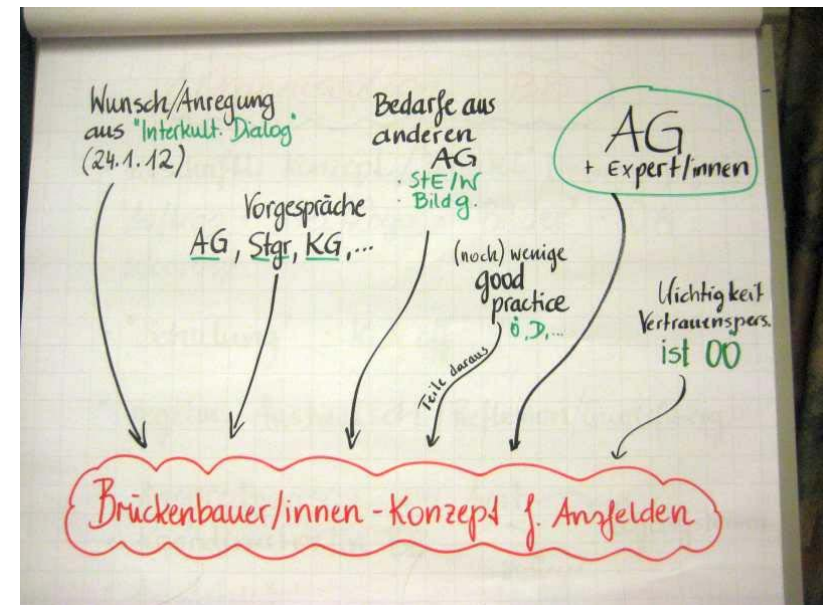 Wunsch/Anregung
aus "Interkult. Dialog"
(24.1.12)
Vorgespräche
AG, Stgr, KG, ...
Bedarfe aus
anderen
AG
· StE/W
· Bildg.
(noch) wenige
good
practice
Ö, D, ...
Teile daraus
AG
+ Expert/innen
Wichtigkeit
Vertrauenspers.
ist OÖ
Brückenbauer/innen - Konzept f. Ansfelden